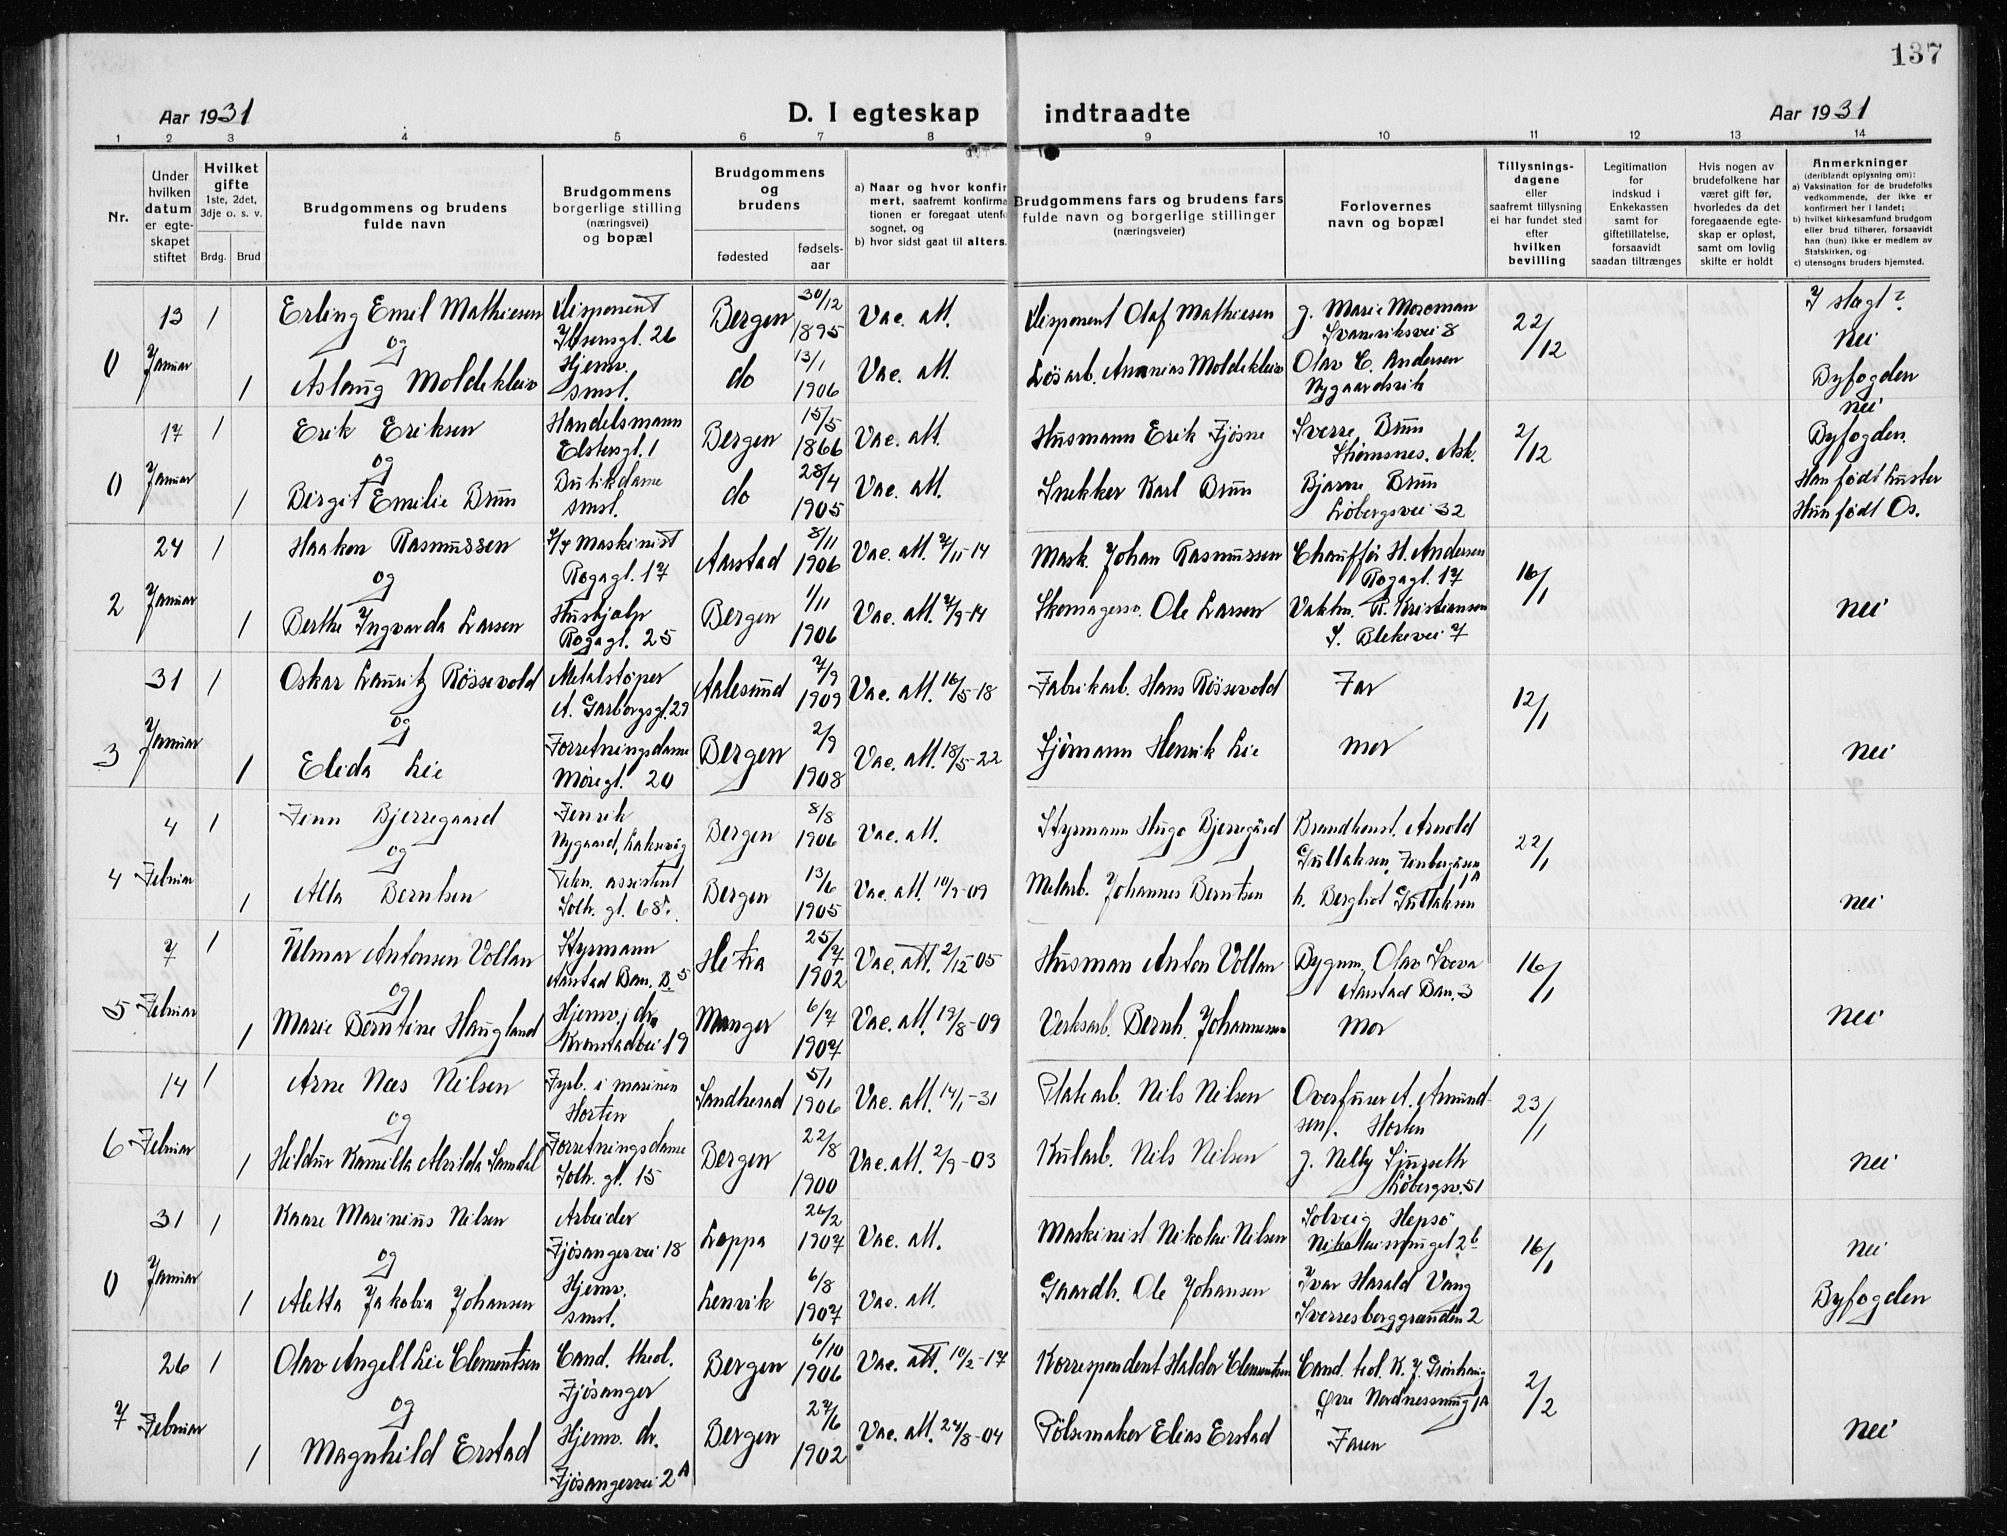 137
Aar 1931
D. I egteskap indtraadte
Aar 1931
1 2 3 4 5 6 7 8 9 10 11 12 13 14
Nr.
Under hvilken datum er egte- skapet stiftet
Hvilket gifte 1ste, 2det, 3dje o. s. v.
Brdg. Brud
Brudgommens og brudens fulde navn
Brudgommens borgerlige stilling (næringsvei) og bopæl
Brudgommens og brudens
fødested
fødsels- aar
a) Naar og hvor konfir
mert, saafremt konfirma
tionen er foregaat utenfo
sognet, og
b) hvor sidst gaat til alters.
Brudgommens fars og brudens fars
fulde navn og borgerlige stillinger
(næringsveier)
Forlovernes navn og bopæl
Tillysnings- dagene eller saafremt tillysning ei har fundet sted efter hvilken bevilling
Legitimation for indskud i Enkekassen samt for giftetillatelse, forsaavidt saadan tiltrænges
Hvis nogen av brudefolkene har været gift før, hvorledes da det foregaaende egte- skap er opløst, samt om lovlig skifte er holdt
Anmerkninger
(deriblandt oplysning om):
a) Vaksination for de brudefolks vedkommende, der ikke er konfirmert her i landet;
b) hvilket kirkesamfund brudgom eller brud tilhører, forsaavidt han (hun) ikke er medlem av Statskirken, og
c) utensogns bruders hjemsted.
0 13 Januar 1 Erling Emil Mathiesen Disponent Ibsensgt. 26 Bergen 30/12 1895 Vac. att. Disponent Olaf Mathiesen g. Marie Mossman Svaneviksvei 8 22/12 I slagt? nei
og
1 Aslaug Moldekleiv Hjemv. smst. do 13/1 1906 Vac. att. Løsarb. Ananias Moldekleiv Olav C. Andersen Nygaardsvik Byfogden
0 17 Januar 1 Erik Eriksen Handelsmann Elstersgt. 1 Bergen 15/5 1866 Vac. att. Husmann Erik Fjøsne Sverre Brun Strømsnes, Ask. 2/12 nei Byfogden.
og
1 Birgit Emilie Brun Butikdame smst. do 28/4 1905 Vac. att. Snekker Karl Brun Bjarne Brun Løbergsvei 32 Han født Luster Hun født Os.
2 24 Januar 1 Haakon Rasmussen Maskinist Rogagt. 17 Aarstad 8/11 1906 Vac. att. 2/11-14 Mask. Johan Rasmussen Chauffør H. Andersen Rogagt. 17 16/1
og
1 Berthe Ingvarda Larsen Hushjelp Rogagt. 25 Bergen 1/11 1906 Vac. att. 2/9-14 Skomagersv. Ole Larsen Vaktm. R. Kristiansen S. Blekevei 7 nei
3 31 Januar 1 Oskar Lauritz Røssevold Metalstøper A. Garborgsgt. 29 Aalesund 7/9 1909 Vac. att. 16/5-18 Fabrikarb. Hans Røssevold Far 12/1
og
1 Elida Lie Forretningsdame Møregt. 20 Bergen 2/9 1908 Vac. att. 18/5-22 Sjømann Henrik Lie mor nei
4 4 Februar 1 Finn Bjerregaard Fenrik Nygaard, Laksevåg Bergen 8/8 1906 Vac. att. Styrmann Hugo Bjerregård Brandkonst. Arnold Gullaksen, 22/1
og
1 Alta Berntsen Tekn. assistent Solh. gt. 68 Bergen 13/6 1905 Vac. att. 10/9-09 Metarb. Johannes Berntsen h. Bergliot Gullaksen nei
5 7 Februar 1 Ulmar Antonsen Vollan Styrmann Aarstad Ban. B 5 Hitra 25/7 1902 Vac. att. 2/12-05 Husman Anton Vollan Bygnm. Olav Sveva Aarstad Ban. 3 16/1
og
1 Marie Berntine Haugland Hjemv. Kronstadvei 19 Manger 6/7 1907 Vac. att. 19/8-09 Verksarb. Bernh. Johannesen Mor nei
6 14 Februar 1 Arne Næs Nilsen Fyrb. i marinen Horten Sandherad 5/1 1906 Vac. att. 14/1-31 Platearb. Nils Nilsen A. Amundsen. Horten 23/1
og
1 Hildur Kamilla Alvilda Samdal Forretningsdame Solh. gt. 15 Bergen 22/8 1900 Vac. att. 2/9-03 Kularb. Nils Nilsen g. Nelly Løbergsv. 51 nei
0 31 Januar 1 Kaare Marinius Nilsen Arbeider Fjøsangervei 18 Loppa 26/2 1907 Vac. att. Maskinist Nikolai Nilsen Solveig Hepsø Nikolaismuget 2b 16/1 nei
og
1 Aletta Jakobia Johansen Hjemv. smst. Lenvik 6/8 1907 Vac. att. Gaardb. Ole Johansen Ivar Harald Vang Sverresberggrænden 2 Byfogden
7 26 Februar 1 Olav Angell Lie Clementsen Cand. theol. Fjøsanger Bergen 6/10 1906 Vac. att. 10/2-17 Korrespondent Haldor Clementsen Cand. teol. K. J. Grønhaug Øvre Nordnessmug 1A 2/2
og
1 Magnhild Erstad Hjemv. dr. Fjøsangervei 2A Bergen 27/6 1902 Vac. att. 24/8-04 Pølsemaker Elias Erstad Faren nei